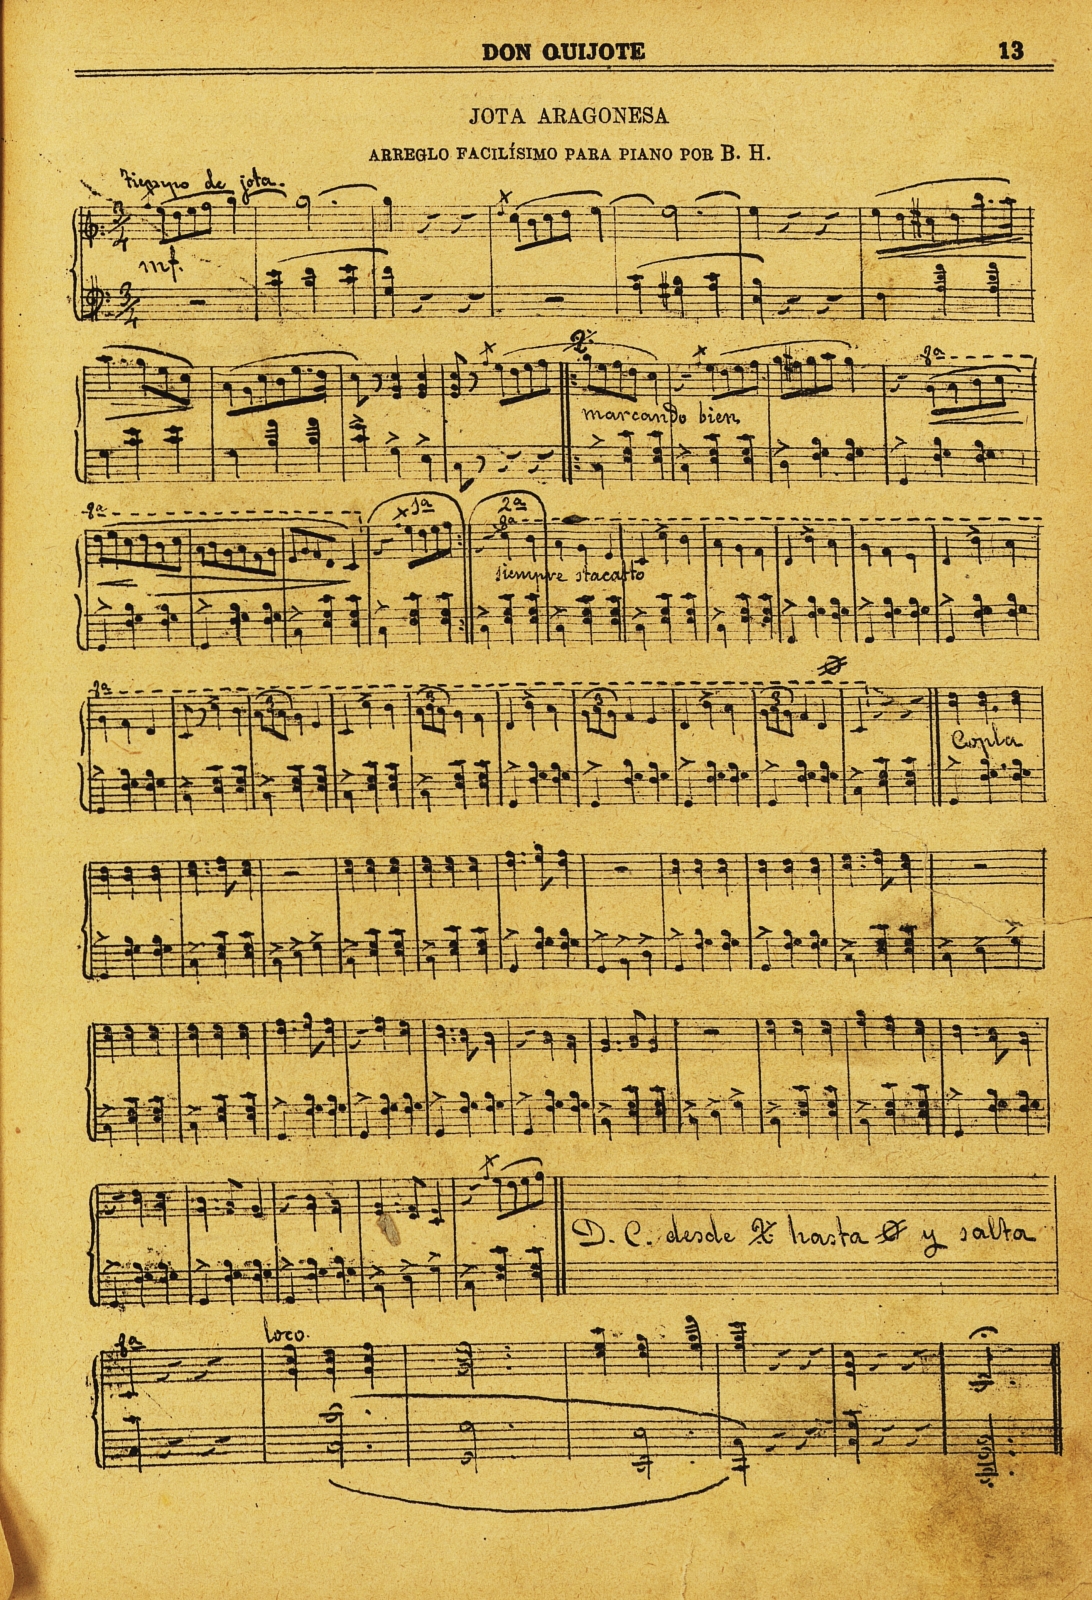 DON QUIJOTE 13
JOTA ARAGONESA
ARREGLO FACILÍSIMO PARA PIANO POR B. H.
Tiempo de jota.
3/4
mf.
3/4
8ª
marcando bien
8ª 1ª 2ª
8ª
siempre stacatto
8ª
3 3 3 3
Copla
D. C. desde 𝄋 hasta 𝄌 y salta
8ª loco.